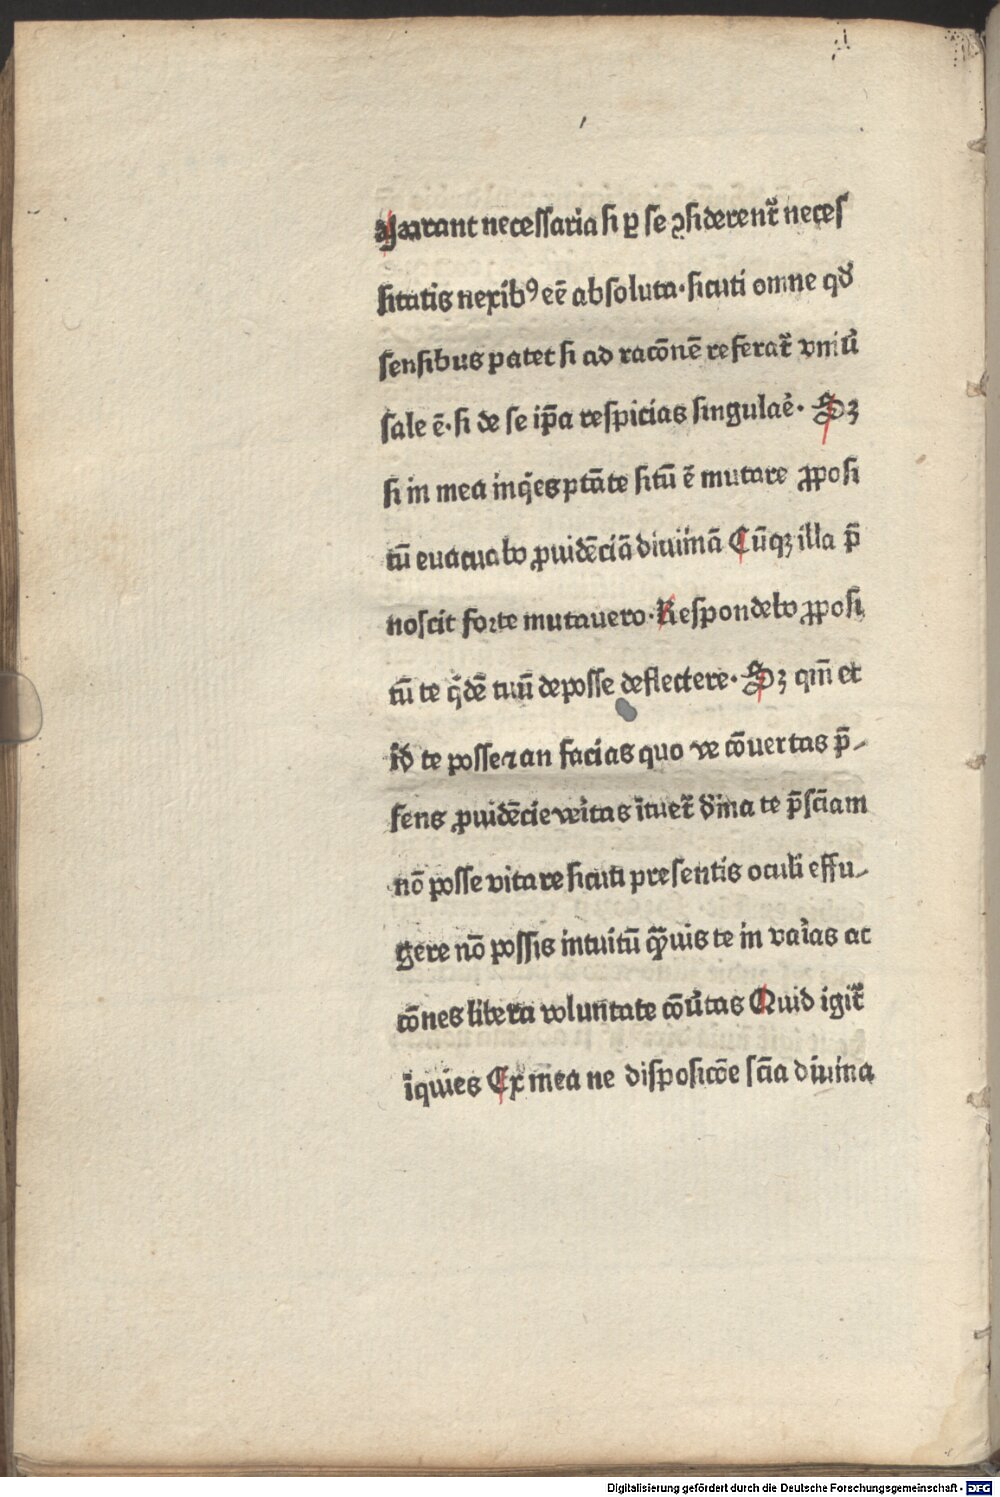 necessaria si ꝑ se ꝯsiderent᷑ neces
sitatis nexibꝰ eē absoluta· sicuti omne qđ
sensibus patet si ad racōnē referat᷑ vniu͛
sale ē· si de se ip̄a respicias singulae͛· Sꝫ
si in mea inqͥes ptāte sitū ē mutare ꝓposi
tū euacuabo ꝓuidēciā diuinā Cūqꝫ illa p̄
noscit forte mutauero· Respondebo ꝓposi
tū te qͥdē tuū deposse deflectere· Sꝫ qm̄ et
id te posse ⁊ an facias quo ve cōuertas p̄-
sens ꝓuidēcie veͥtas ītuet᷑ dīna te p̄sciam
nō posse vitare sicuti presentis oculi effu-
gere nō possis intuitū qͣ̄uis te in vaͥias ac
cōnes libera voluntate cōu͛tas Quid igit᷑
īquies Ex mea ne disposicōe scīa diuina
Digitalisierung gefördert durch die Deutsche Forschungsgemeinschaft - DFG